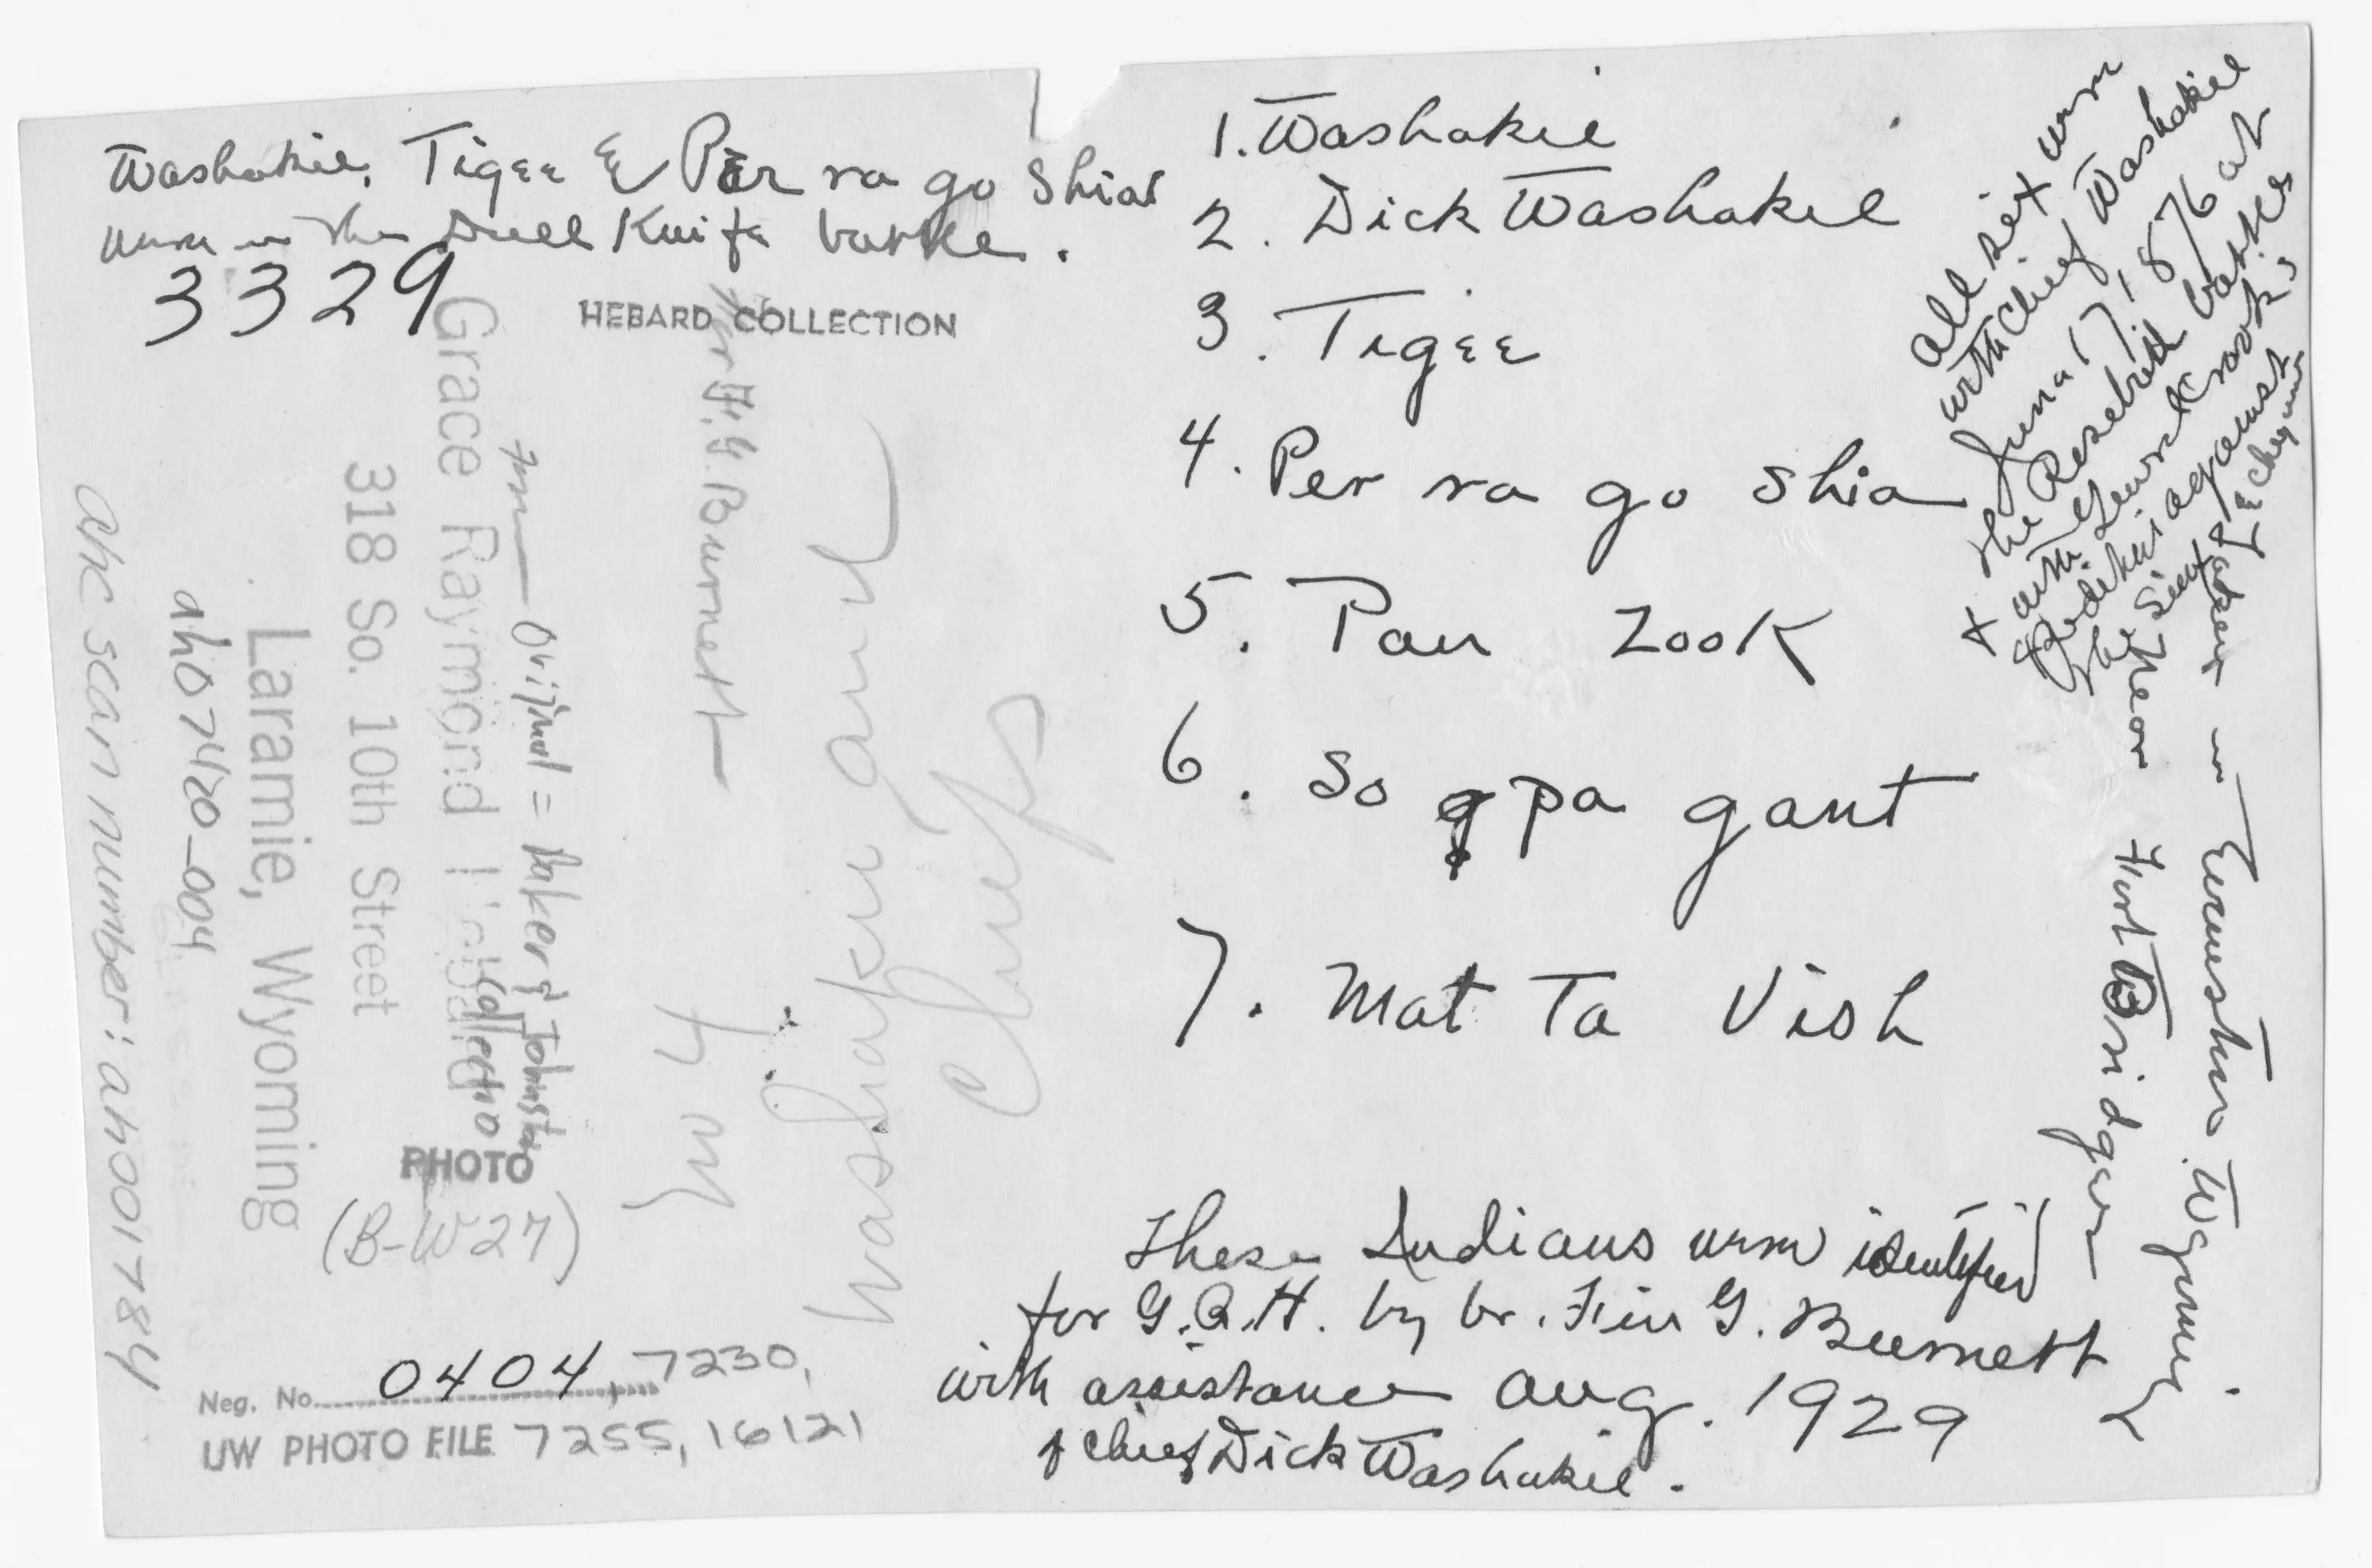 Washakie, Tigee & Per ra go Shia
were in the Dull Knife battle.
3329
HEBARD COLLECTION
1. Washakie
2. Dick Washakie
3. Tigee
4. Per ra go Shia
5. Pan Zook
6. So pa gant
7. Mat Ta Vish
All six were
with Chief Washakie
June 17, 1876 at
the Rosebud battle
with Crook
against
the Sioux & Cheyenne
Near Fort Bridger
taken in Evanston Wyoming.
These Indians were identified
for G.R.H. by Dr. Fin G. Burnett
with assistance Aug. 1929
of Chief Dick Washakie.
F. G. Burnett
Washakie and
Chiefs
No 4
from Original = Baker & Johnston
Collection
Grace Raymond Hebard
318 So. 10th Street
Laramie, Wyoming
ah07420_004
ahc scan number: ah001784
PHOTO
(B-W27)
Neg. No. 0404, 7230,
UW PHOTO FILE 7255, 16121